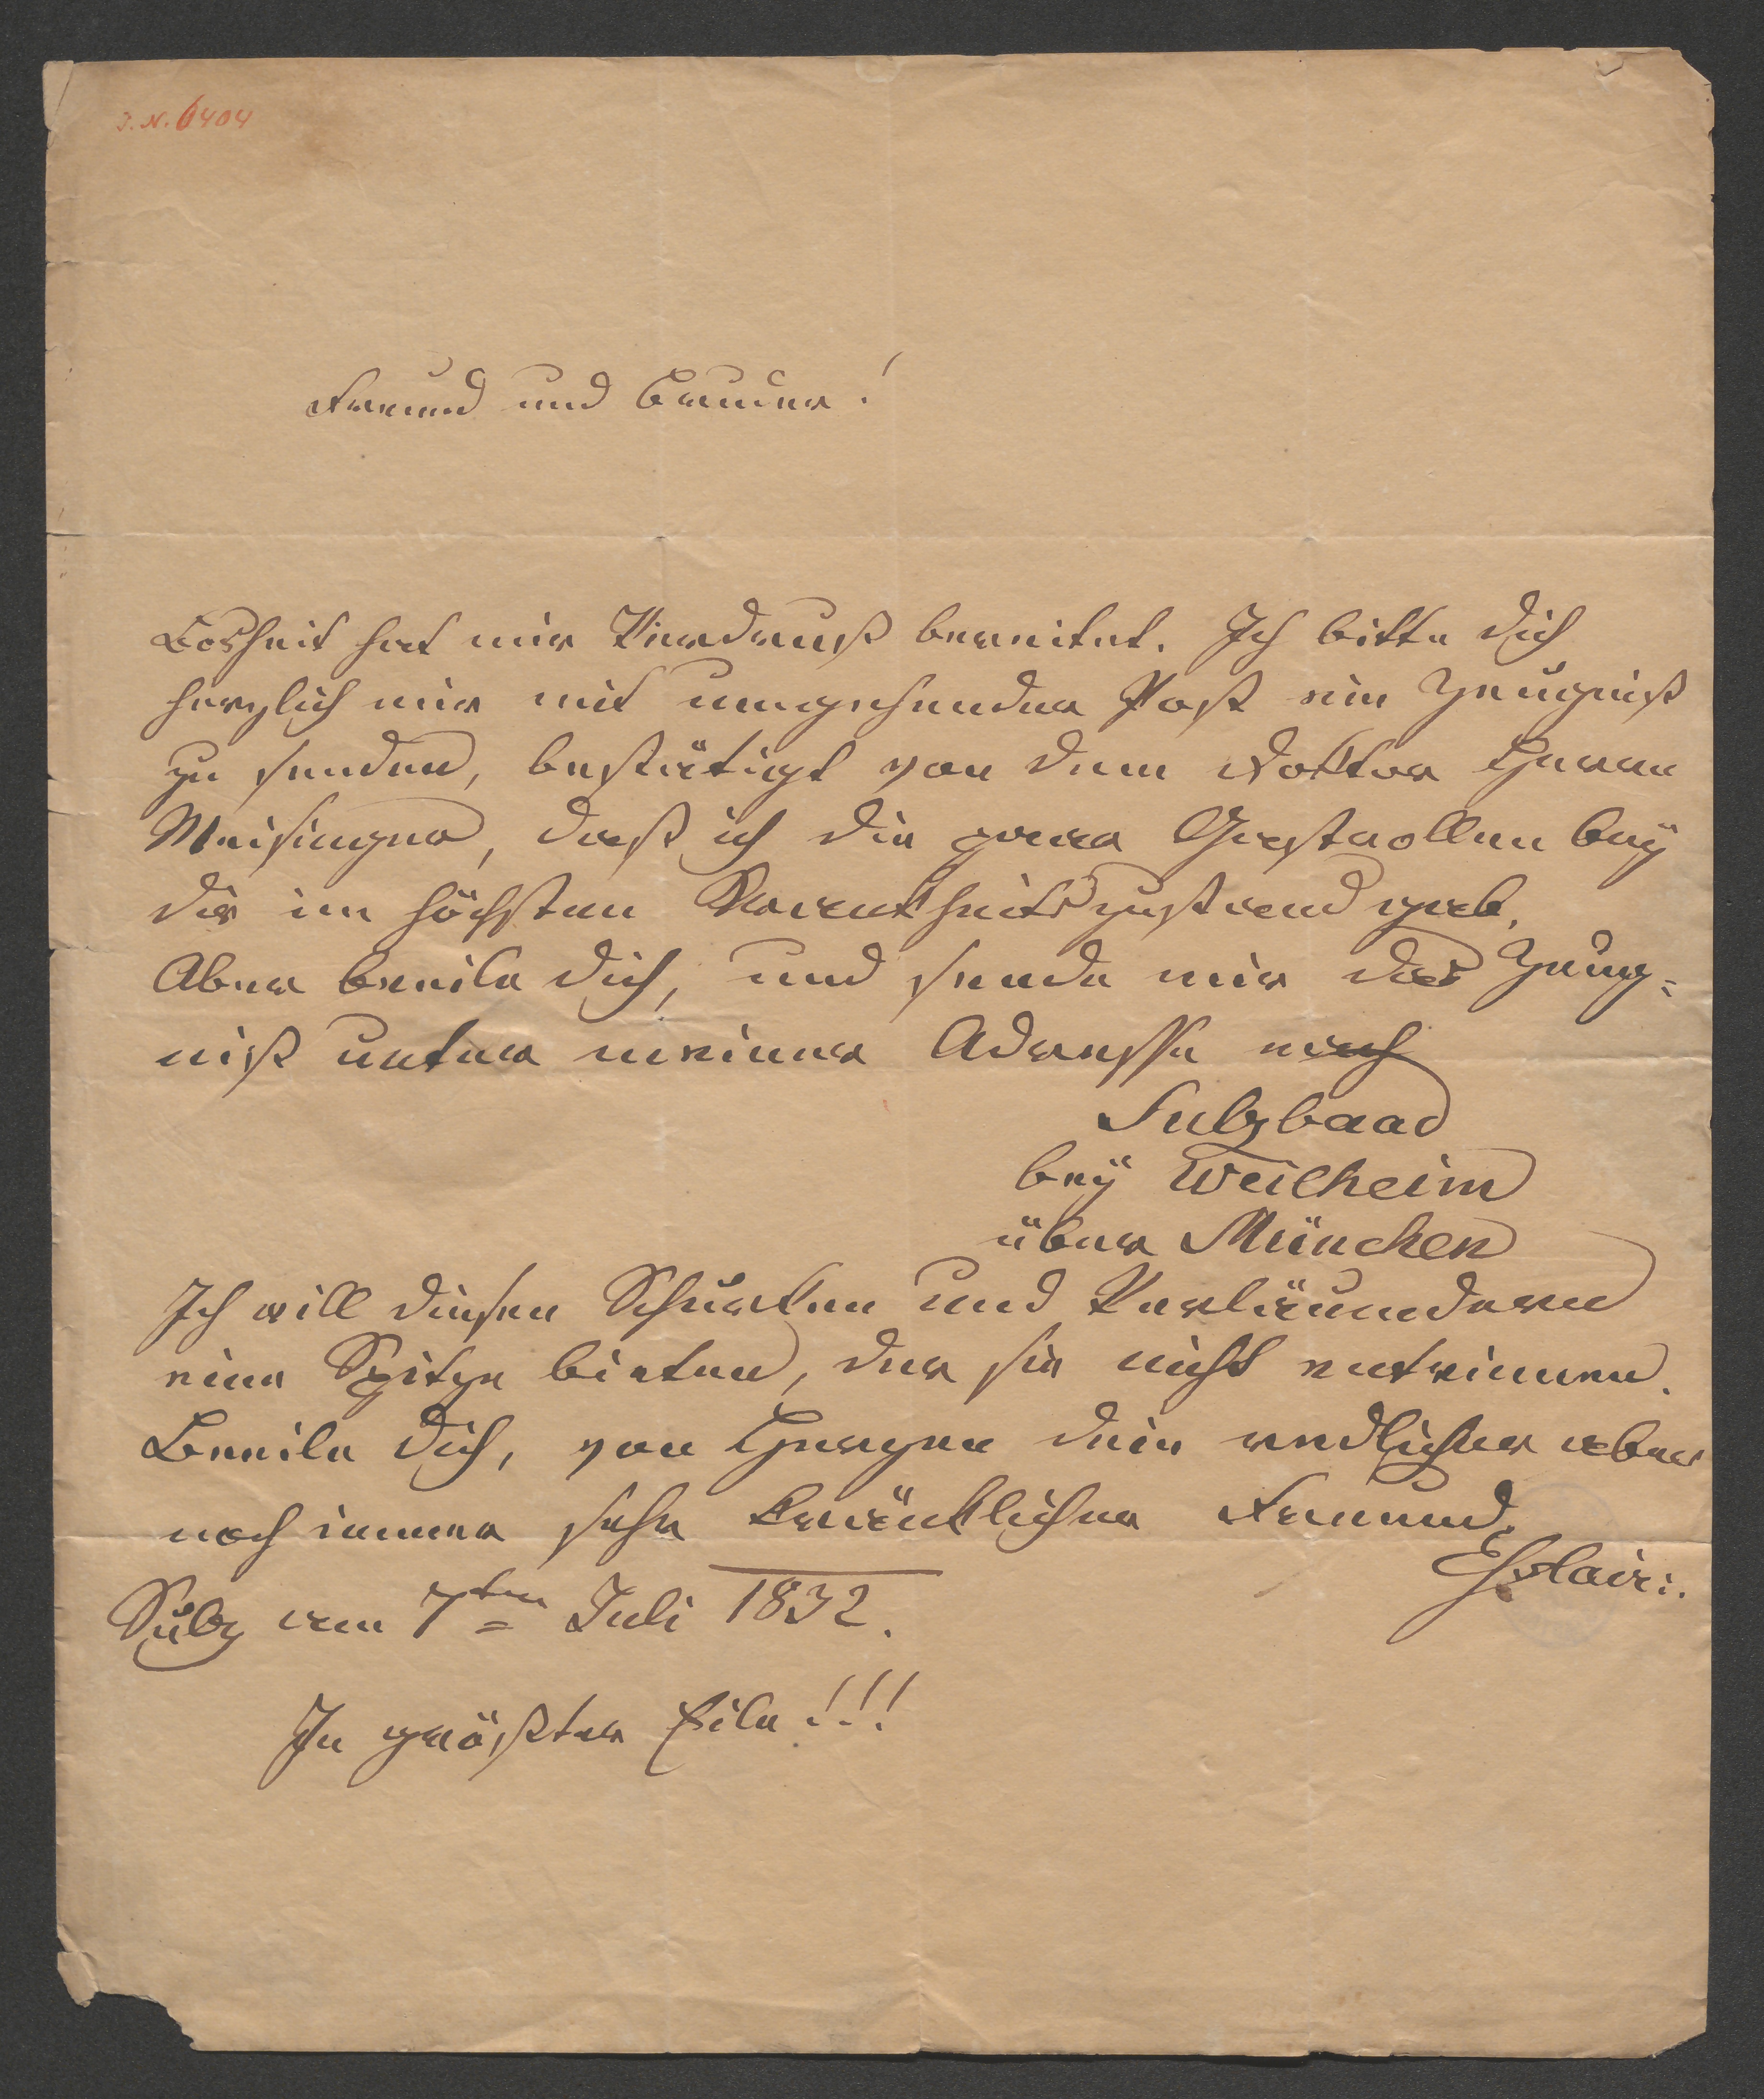 I. N. 6404
Freund und Bruder!
Bosheit hat mir Verdruß bereitet. Ich bitte dich
herzlich mir mit umgehender Post ein Zeugniß
zu senden, bestätigt von dem Doktor Herrn
Meisinger, daß ich die paar Gastrollen bey
dir im höchsten Krankheitszustand gab.
Aber beeile dich, und sende mir das Zeug=
niß unter meiner Adresse nach
Sulzbaad
bey Weilheim
über München
Ich will diesen Schurken und Verläumdern
eine Spitze bieten, der sie nicht entrinnen.
Beeile dich, von Herzen dein redlicher aber
noch immer sehr kränklicher Freund.
Esslair.
Sulz am 7ten Juli 1832.
In größter Eile!!!